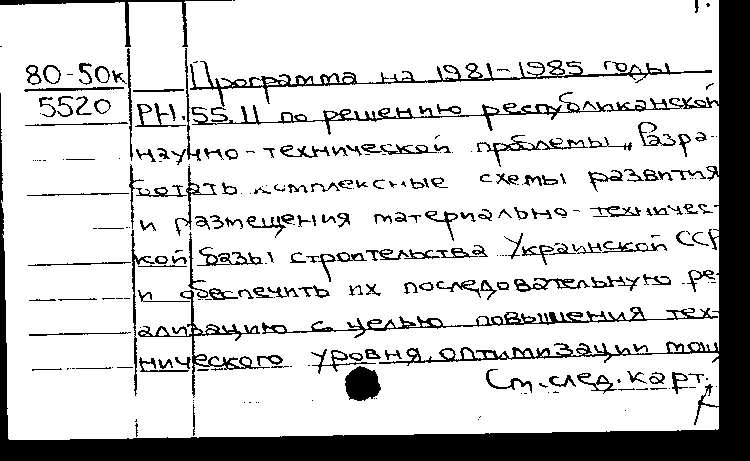 80-50к Программа на 1981-1985 годы
5520 РН.55.11 по решению республиканской
научно-технической проблемы „Разра-
ботать комплексные схемы развития
и размещения материально-техничес-
кой базы строительства Украинской ССР
и обеспечить их последовательную ре-
ализацию с целью повышения тех-
нического уровня, оптимизации мощ
См. след. карт.